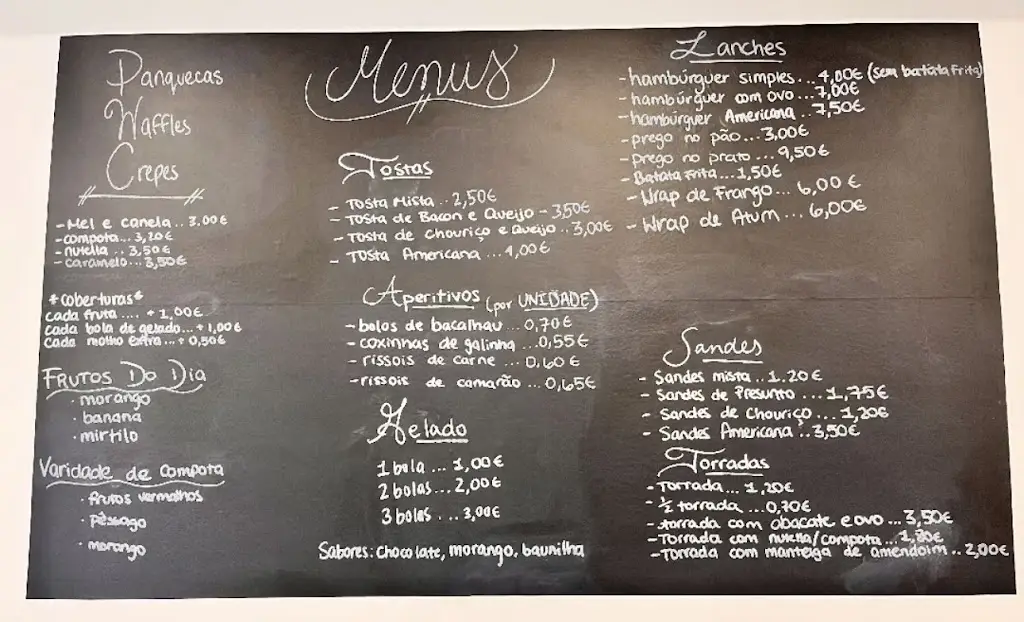 Panquecas
Waffles
Crepes
- Mel e canela .. 3,00€
- compota... 3,20€
- nutella .. 3,50€
- caramelo... 3,50€
*coberturas*
cada fruta .... + 1,00€
cada bola de gelado...+ 1,00€
cada molho extra...+ 0,50€
Frutos Do Dia
· morango
· banana
· mirtilo
Varidade de compota
· frutos vermalhos
· pêssago
· morango
Menus
Tostas
- Tosta Mista .. 2,50€
- Tosta de Bacon e Queijo - 3,50€
- Tosta de Chouriço e Queijo .. 3,00€
- Tosta Americana ... 4,00€
Aperitivos (por UNIDADE)
- bolos de bacalhau ... 0,70€
- coxinhas de galinha ...0,55€
- rissois de carne ... 0,60€
- rissois de camarão ... 0,65€
Gelado
1 bola ... 1,00€
2 bolas... 2,00€
3 bolas ... 3,00€
Sabores: chocolate, morango, baunilha
Lanches
- hambúrguer simples... 4,00€ (sem batata Frita)
- hambúrguer com ovo ... 7,00€
- hambúrguer Americana .. 7,50€
- prego no pão ... 3,00€
- prego no prato ... 9,50€
- Batata Frita... 1,50€
- Wrap de Frango... 6,00€
- Wrap de Atum ... 6,00€
Sandes
- Sandes mista .. 1.20€
- Sandes de Presunto ... 1,75€
- Sandes de Chouriço ... 1,20€
- Sandes Americana .. 3,50€
Torradas
- Torrada... 1,20€
- ½ torrada ... 0,70€
- torrada com abacate e ovo... 3,50€
- Torrada com nutella/compota ... 1,80€
- Torrada com manteiga de amendoim .. 2,00€